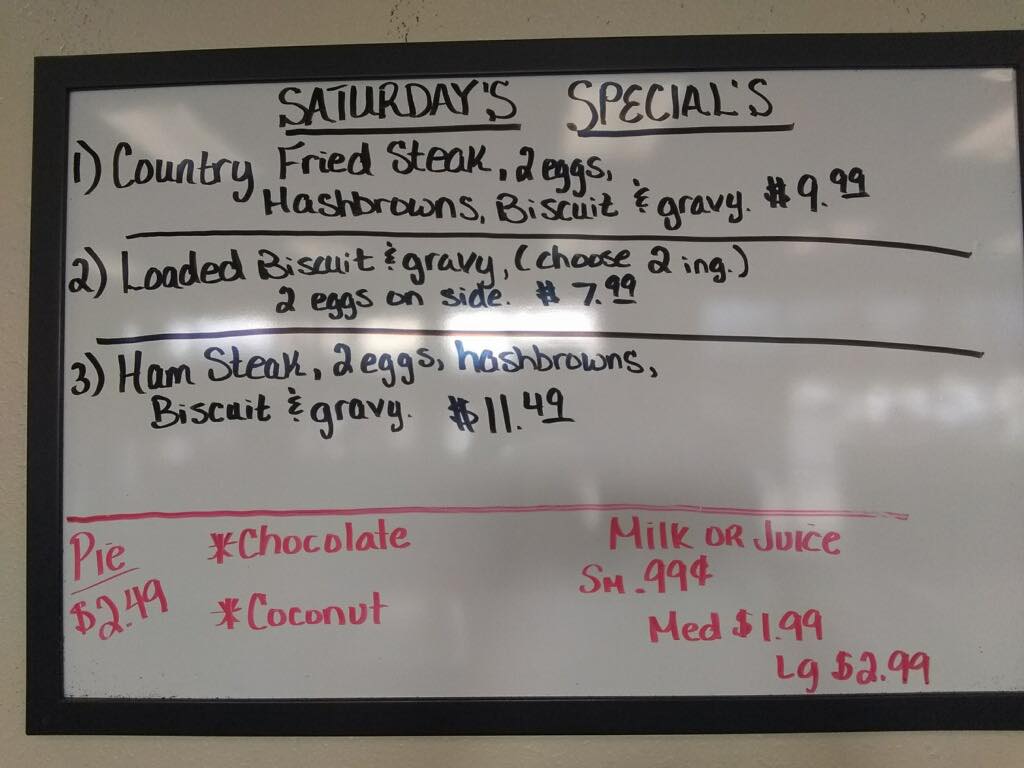 SATURDAY'S SPECIAL'S
1) Country Fried Steak, 2 eggs,
Hashbrowns, Biscuit & gravy. $9.99
2) Loaded Biscuit & gravy, (choose 2 ing.)
2 eggs on side. $7.99
3) Ham Steak, 2 eggs, hashbrowns,
Biscuit & gravy. $11.49
Pie
$2.49
*Chocolate
*Coconut
Milk OR Juice
Sm .99¢
Med $1.99
Lg $2.99